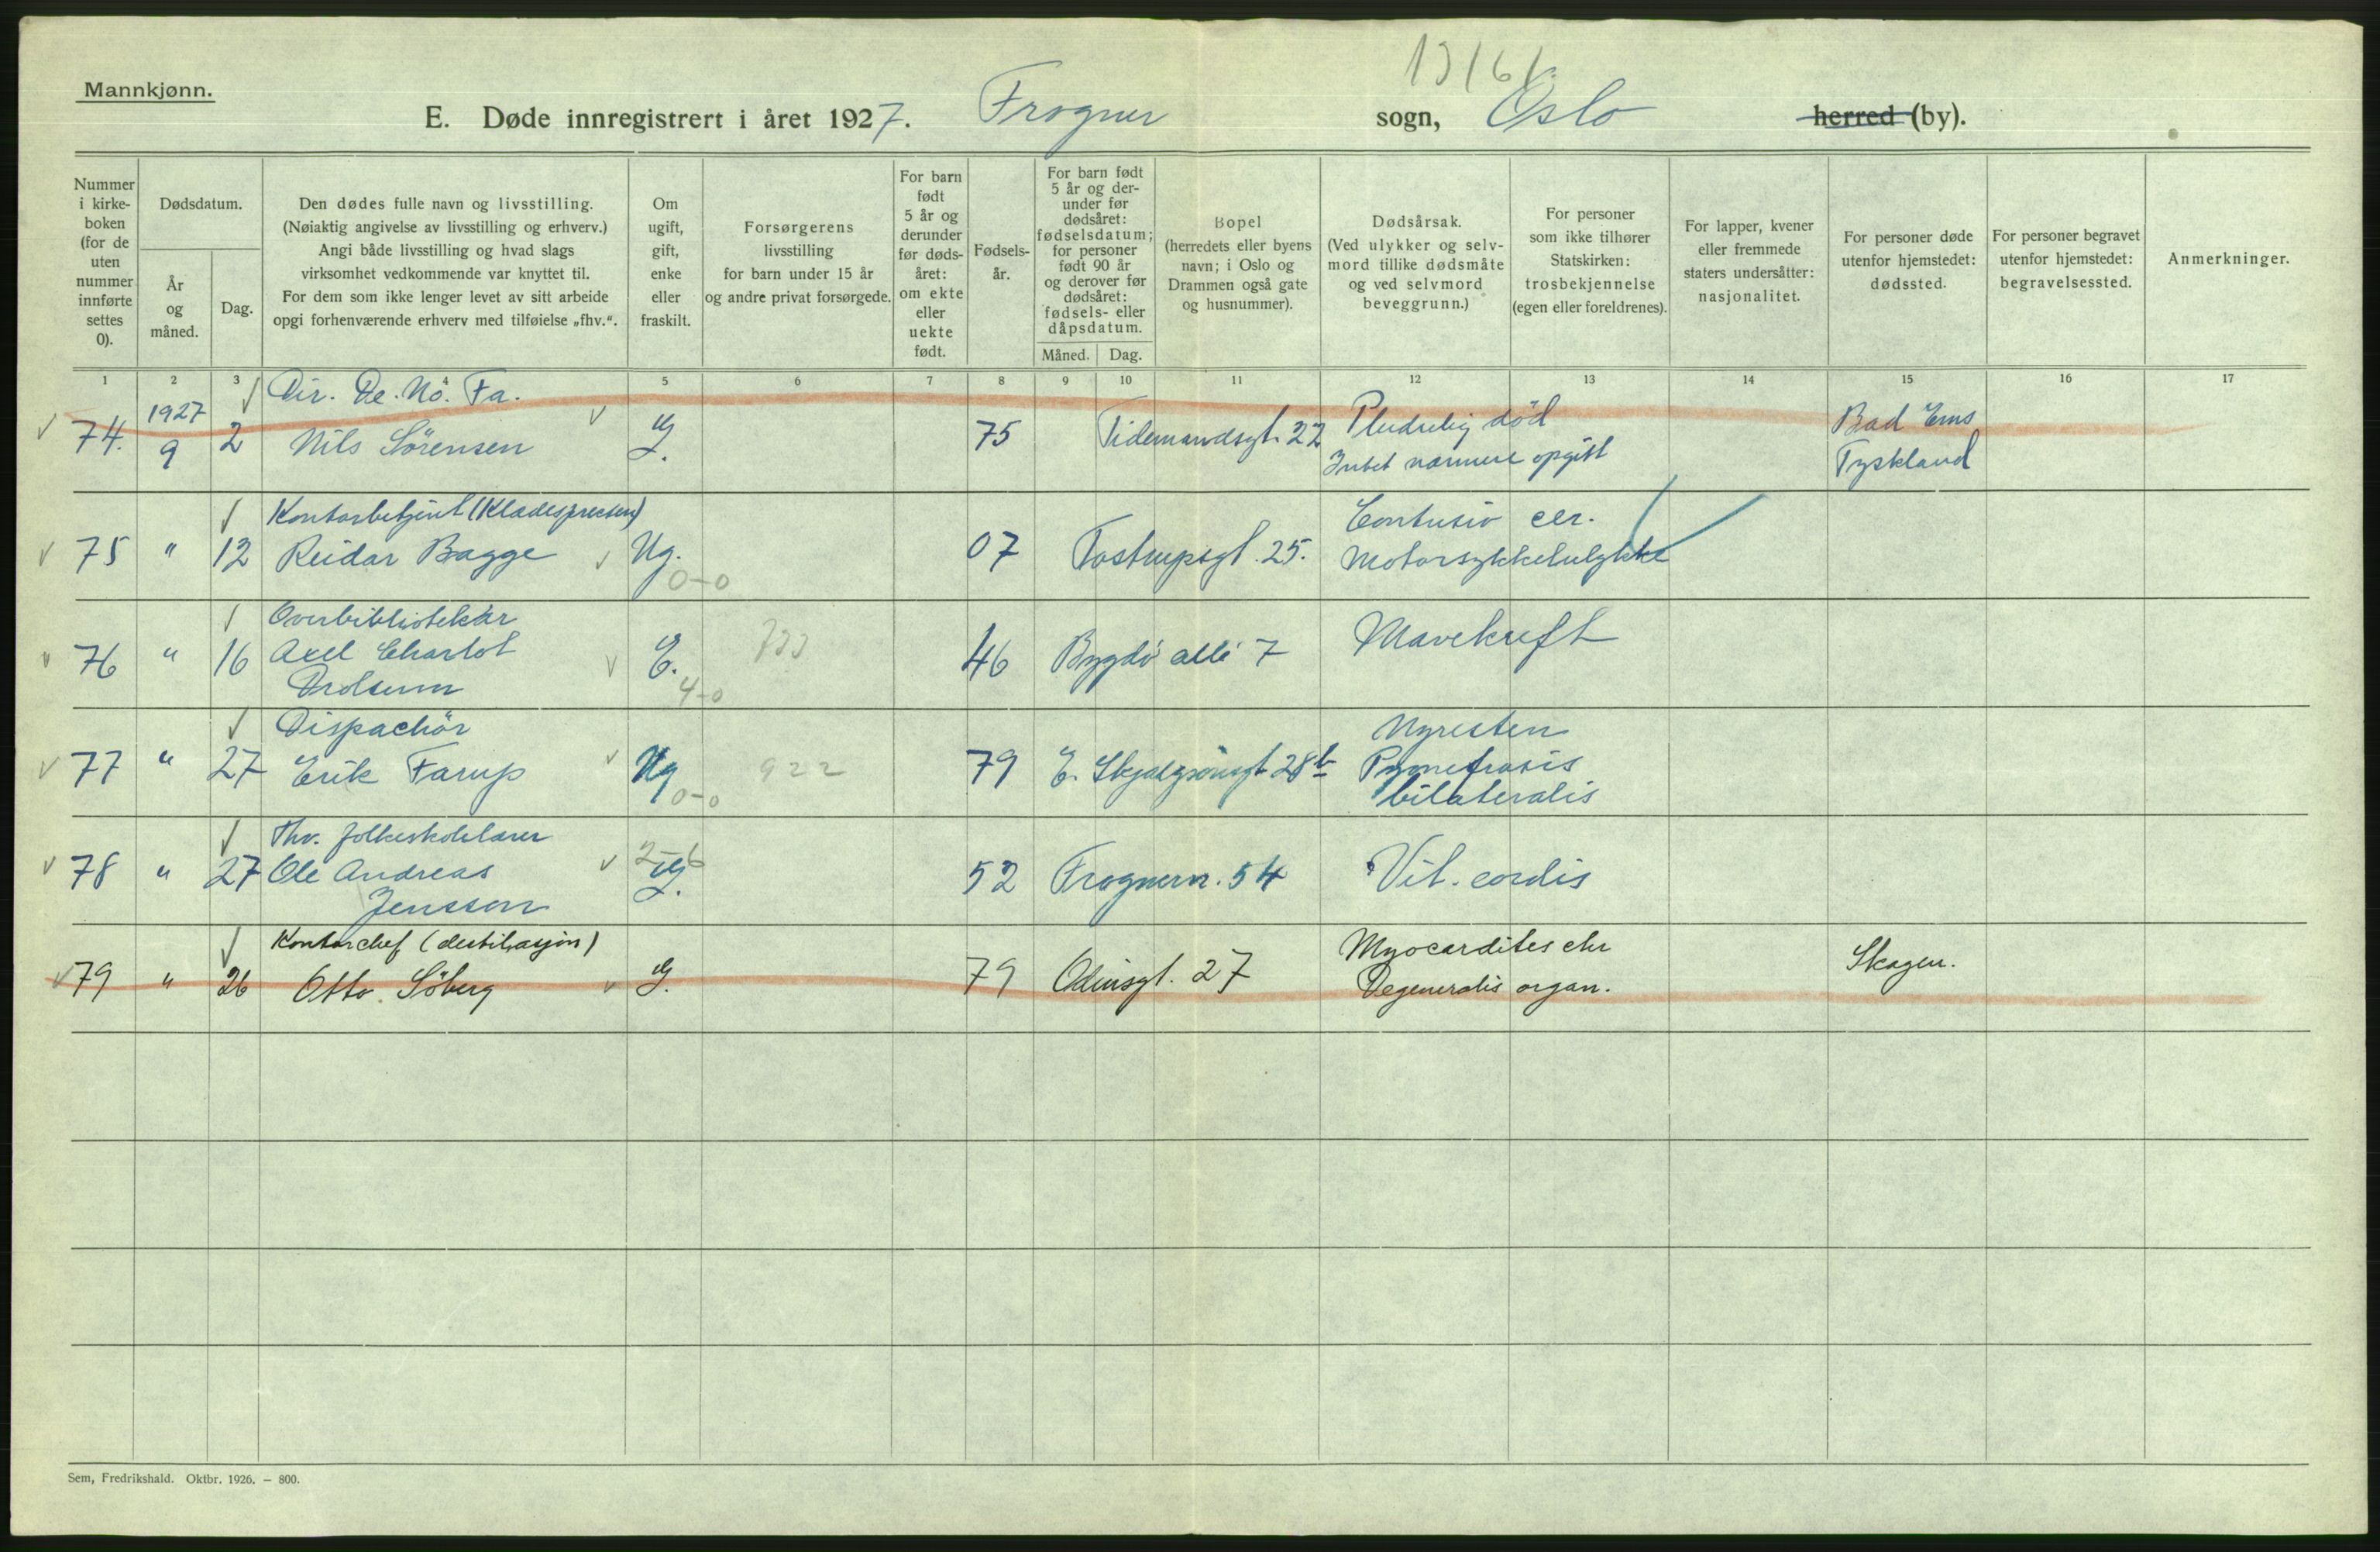 13161
Mannkjønn.
E. Døde innregistrert i året 1927. Frogner sogn, Oslo herred (by).
Nummer i kirke-boken (for de uten nummer innførte settes 0).
Dødsdatum.
År og måned.
Dag.
Den dødes fulle navn og livsstilling.
(Nøiaktig angivelse av livsstilling og erhverv.)
Angi både livsstilling og hvad slags
virksomhet vedkommende var knyttet til.
For dem som ikke lenger levet av sitt arbeide
opgi forhenværende erhverv med tilføielse „fhv.“.
Om ugift, gift, enke eller fraskilt.
Forsørgerens
livsstilling
for barn under 15 år
og andre privat forsørgede.
For barn født 5 år og derunder før døds-året: om ekte eller uekte født.
Fødsels-år.
For barn født 5 år og der-under før dødsåret: fødselsdatum; for personer født 90 år og derover før dødsåret: fødsels- eller dåpsdatum.
Måned. Dag.
Bopel
(herredets eller byens
navn; i Oslo og
Drammen også gate
og husnummer).
Dødsårsak.
(Ved ulykker og selv-
mord tillike dødsmåte
og ved selvmord
beveggrunn.)
For personer
som ikke tilhører
Statskirken:
trosbekjennelse
(egen eller foreldrenes).
For lapper, kvener
eller fremmede
staters undersåtter:
nasjonalitet.
For personer døde
utenfor hjemstedet:
dødssted.
For personer begravet
utenfor hjemstedet:
begravelsessted.
Anmerkninger.
1 2 3 4 5 6 7 8 9 10 11 12 13 14 15 16 17
Dir. De. No. Fa.
74. 1927 9 2 Nils Sörensen G. 75 Tidemandsgt. 22 Pludselig död
Intet nærmere opgitt
Bad Ems
Tyskland
Kontorbetjent
75 " 12 Reidar Bagge Ug. 0-0 07 Tostrupsgt. 25. Contusio cer.
Motorsykkelulykke
Overbibliotekar
76 " 16 Axel Charlot
Drolsum E. 4-0 46 Bygdö allé 7 Mavekreft
Dispachör
77 " 27 Erik Farup Ug 0-0 922 79 E. Skjalgsönsgt 28b Nyresten
Pyonefrosis
bilateralis
Fhv. folkeskolelærer
78 " 27 Ole Andreas
Jenssen 2-6 G. 52 Frognerv. 54 Vit. cordis
Kontorchef (destilasjon)
79 " 26 Otto Söberg G. 79 Odinsgt. 27 Myocardites chr
Degeneratis organ.
Skagen.
Sem, Fredrikshald. Oktbr. 1926. – 800.